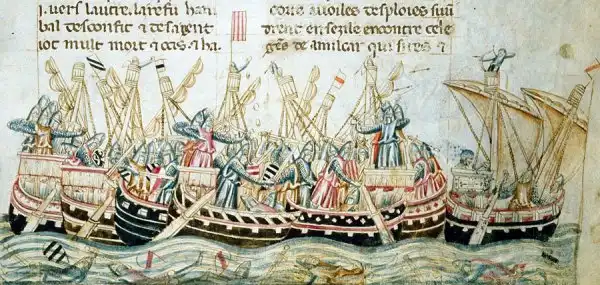 i. uers lautre. la refu han
bal desconfit ⁊ de sa gent
iot mult mort ⁊ ocis ⁊ ha
auoiles desploies siuin
drent en sezile encontre cele
ges de amilcar qui sires ⁊